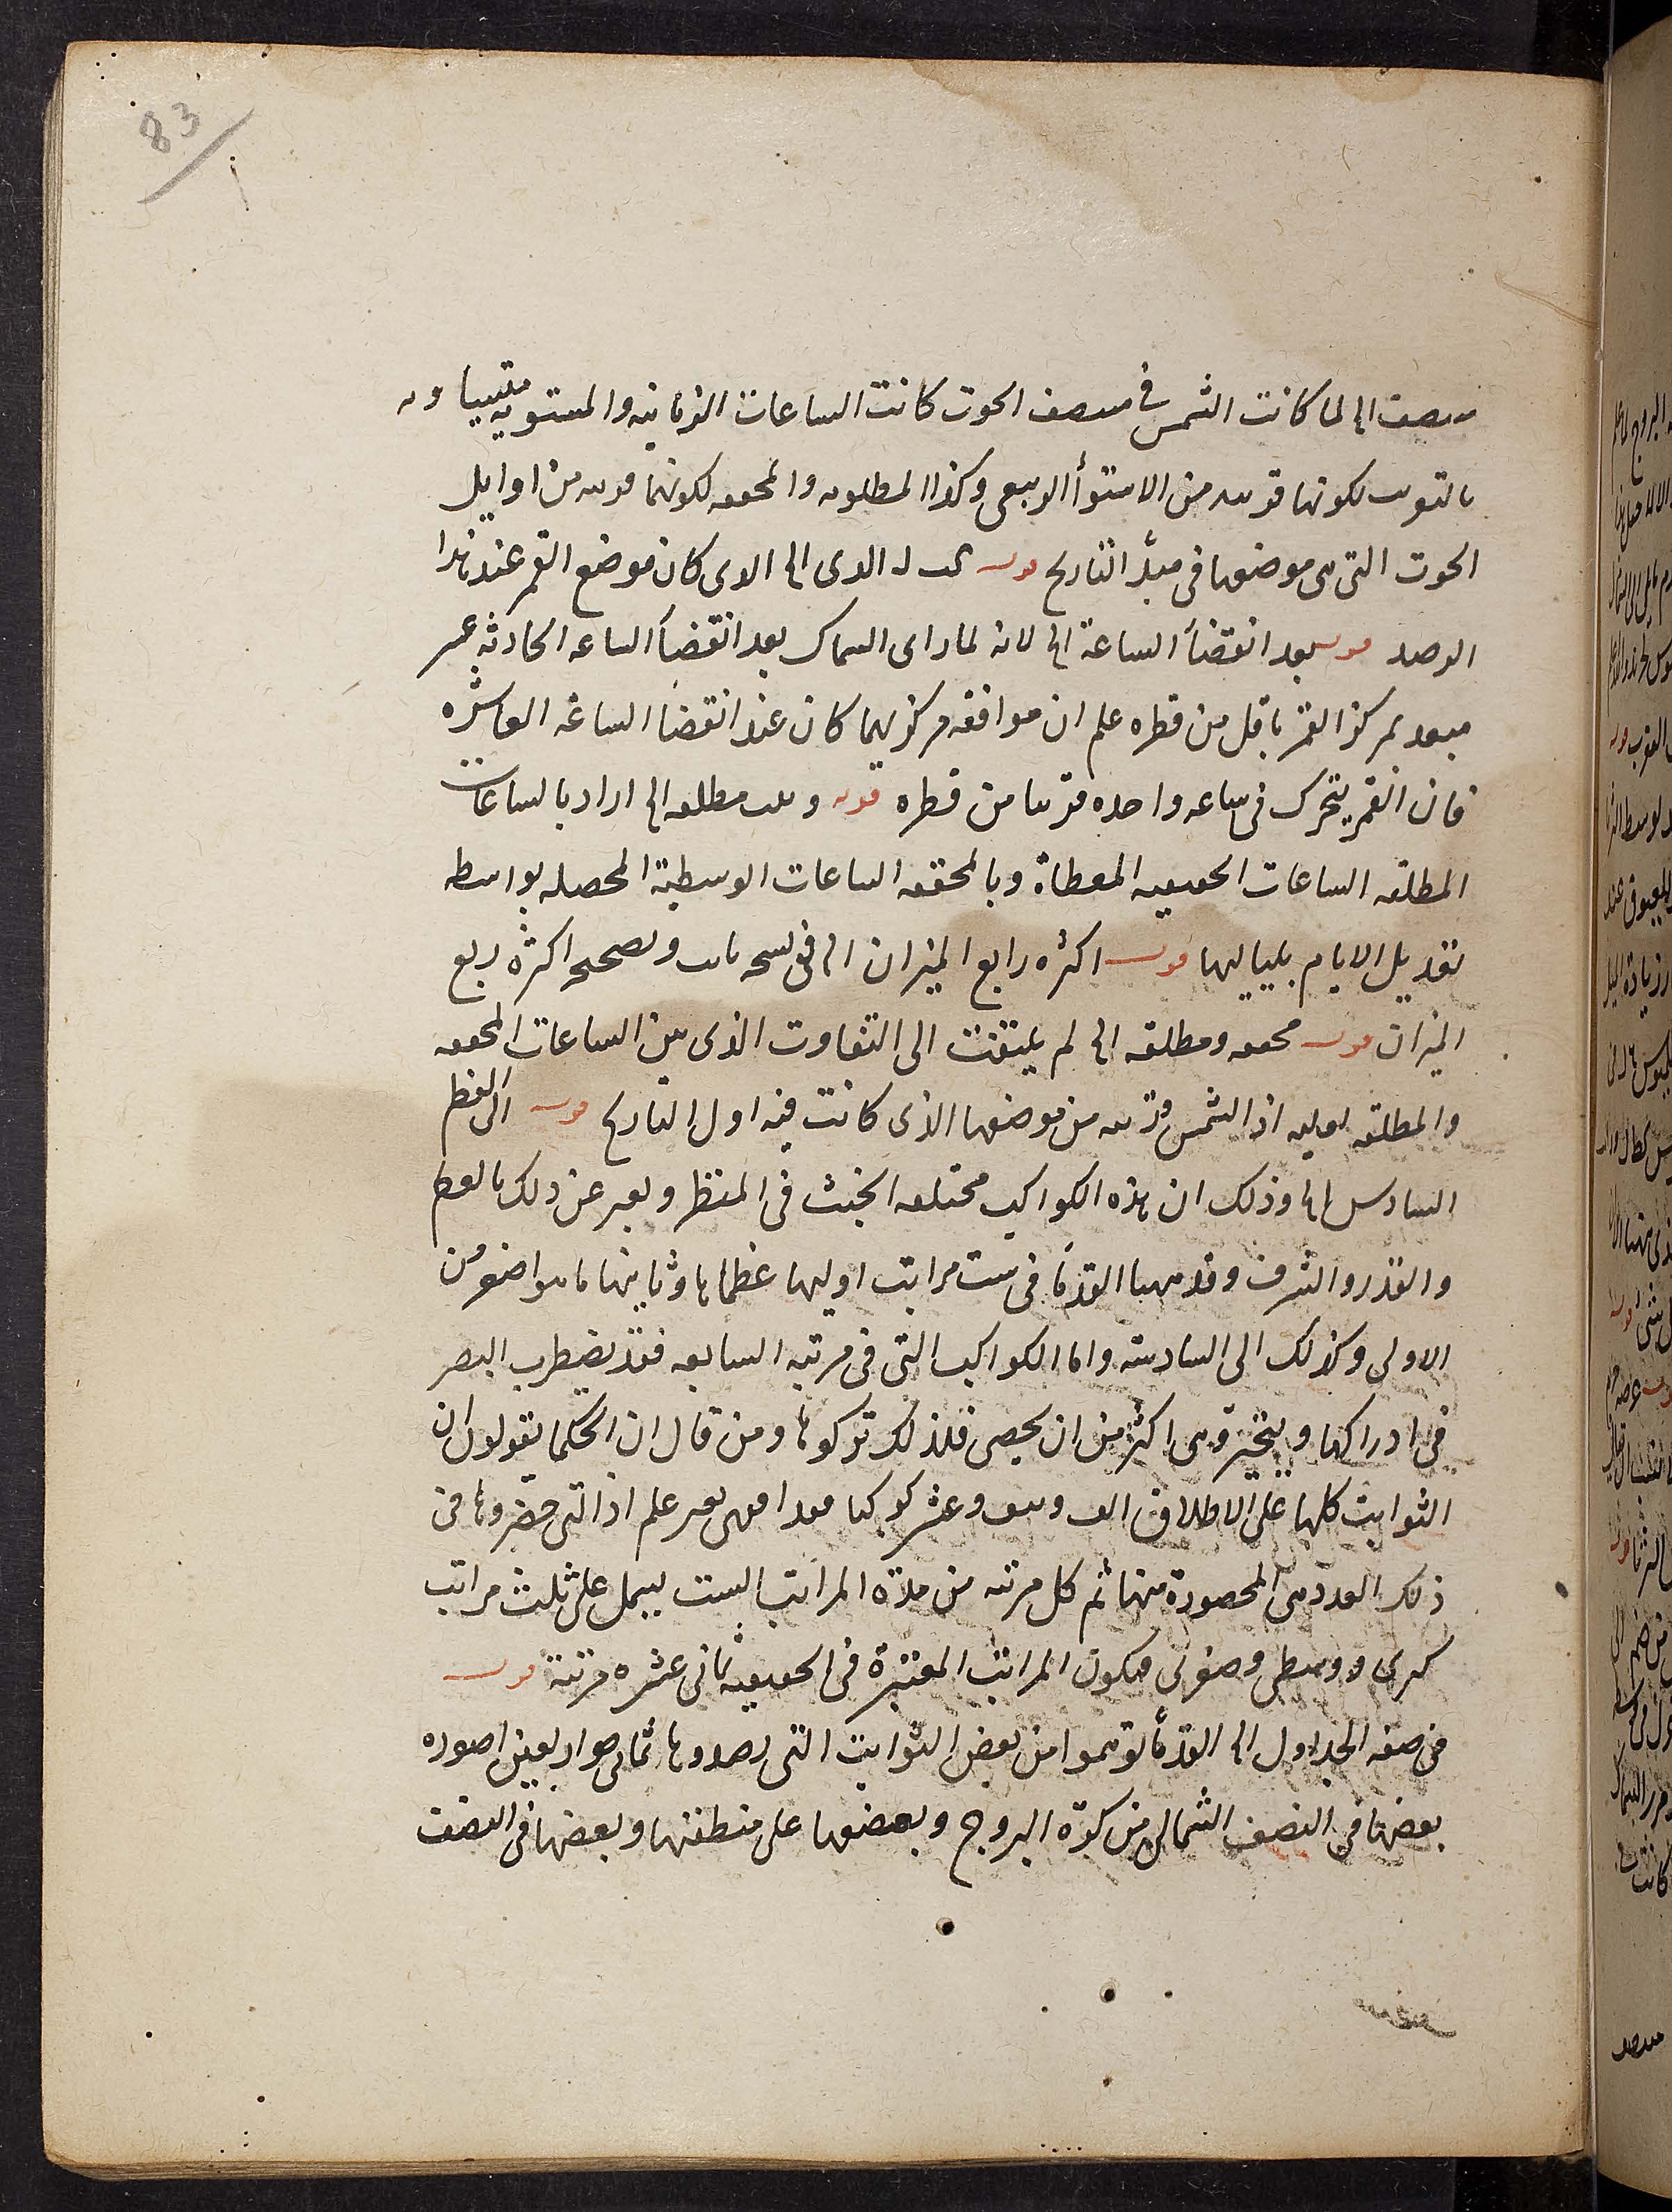 83
منتصف الخ لما كانت الشمس في منتصف الحوت كانت الساعات الزمانيه والمستويه متساويه
بالتقريب لكونها قريبه من الاستوأ الربيعى وكذا المطلوبه والمحققه لكونهما قريبه من اوايل
الحوت التى هى موضعها فى مبدأ التاريخ قوله الذى الخ الذى كان موضع القمر عند هذا
الرصد قوله بعد انقضأ الساعة الخ لانه لما راى السماك بعد انقضأ الساعه الحادثه عشر
مبعد بمركز القمر باقل من قطره علم ان موافقه مركزيهما كان عند انقضأ الساعه العاشره
فان القمر يتحرك فى ساعه واحده قريبا من قطره قوله وثلث مطلقه الخ اراد بالساعات
المطلقه الساعات الحقيقيه المعطاة وبالمحققه الساعات الوسطية المحصله بواسطه
تعديل الايام بلياليها قوله اكثره رابع الميزان الخ فى نسخه ثابت وتصحيحه اكثره ربع
الميزان قوله محققه ومطلقه الخ لم يلتفت الى التفاوت الذى بين الساعات المحققه
والمطلقه لقلته اذ الشمس قريبه من موضعها الذى كانت فيه اول التاريخ قوله الى العظم
السادس الخ وذلك ان هذه الكواكب مختلفه الجثث فى المنظر ويعبر عن ذلك بالعظم
والقدر والشرف وقد رتبها القدمأ فى ست مراتب اوليها عظماها وثانيها ما هو اصغر من
الاولى وكذلك الى السادسة واما الكواكب التى فى مرتبه السابعه فقد يضطرب البصر
فى ادراكها ويتحير وهى اكثر من ان يحصى فلذلك تركوها ومن قال ان الحكما يقولون ان
الثوابت كلها على الاطلاق الف ونيف وعشر كوكبا فهى بغير علم اذ التى حصروها فى
ذلك العدد هى المحصورة منها ثم كل مرتبه من هذه المراتب الست يشمل على ثلث مراتب
كبرى ووسطى وصغرى فيكون المراتب المعتبرة فى الحقيقيه ثمانى عشره مرتبة قوله
فى صفه الجداول الخ القدمأ توهموا من بعض الثوابت التى رصدوها ثمانى واربعين صوره
بعضها فى النصف الشمالى من كرة البروج وبعضها على منطقتها وبعضها فى النصف